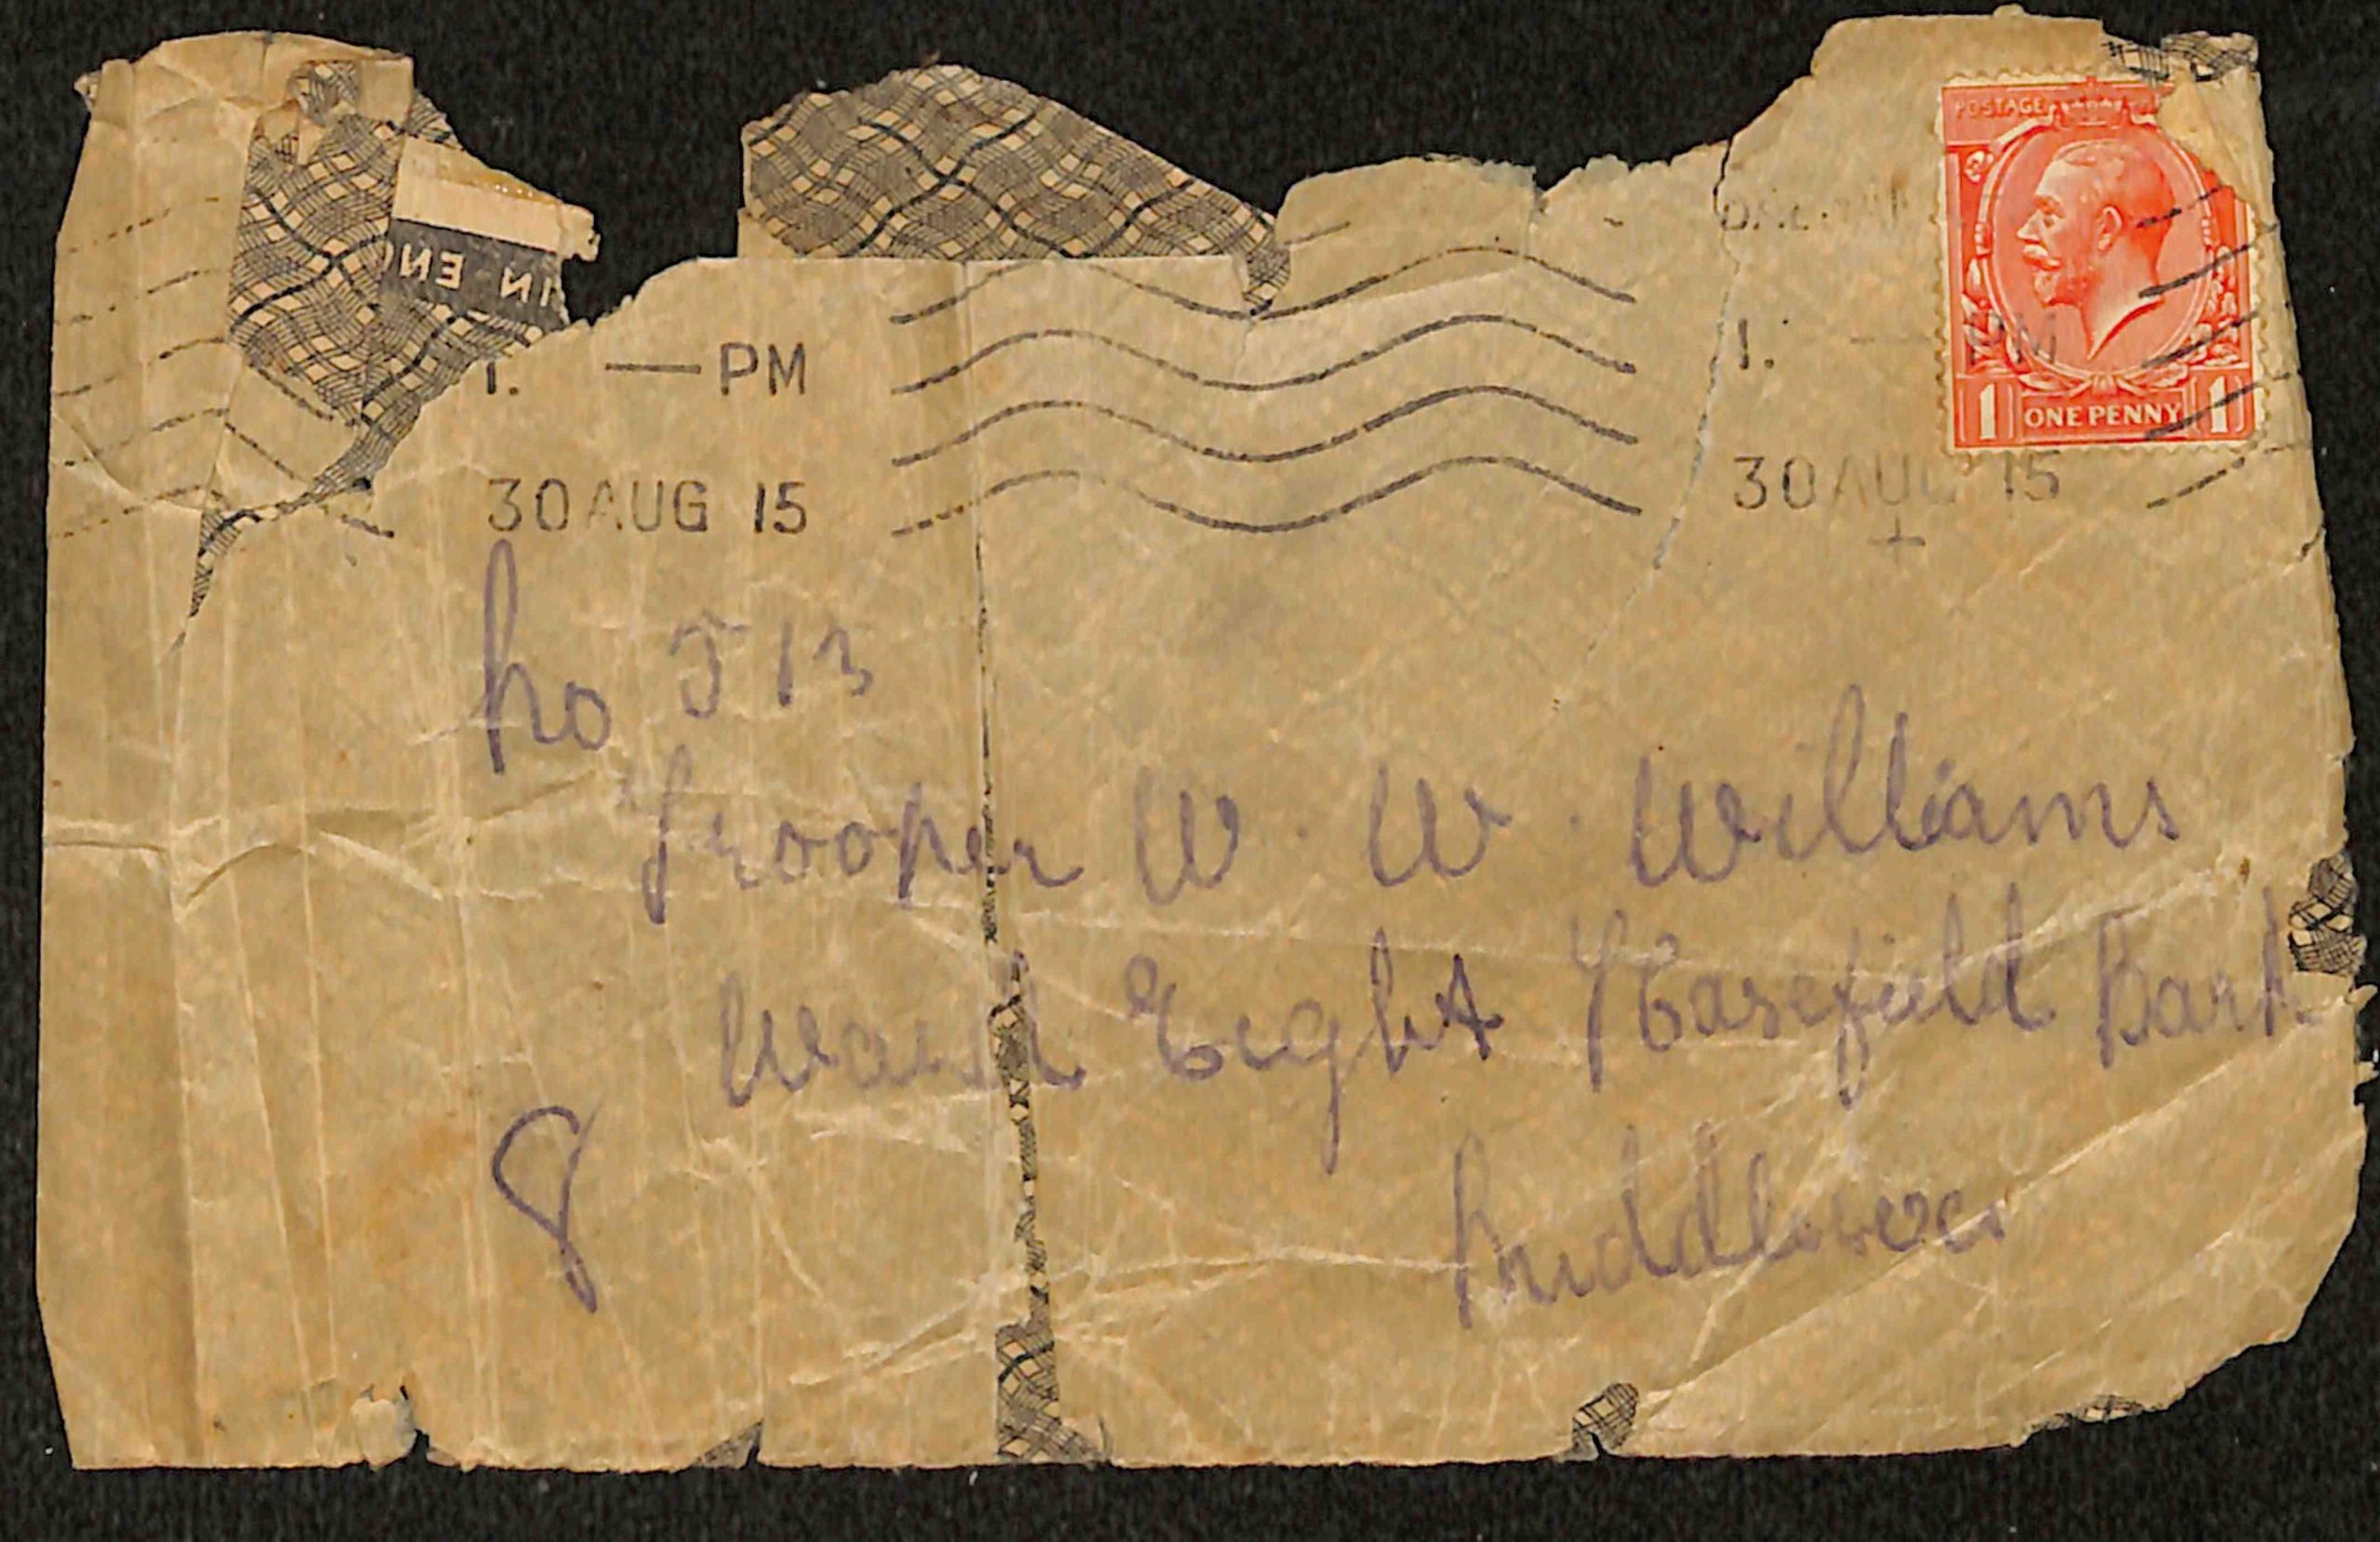 POSTAGE
IN EN
1. — PM
1. — PM
30 AUG 15
30 AUG 15
1 ONE PENNY 1
No 513
Trooper W. W. Williams
Ward Eight Harefield Park
8
Middlesex